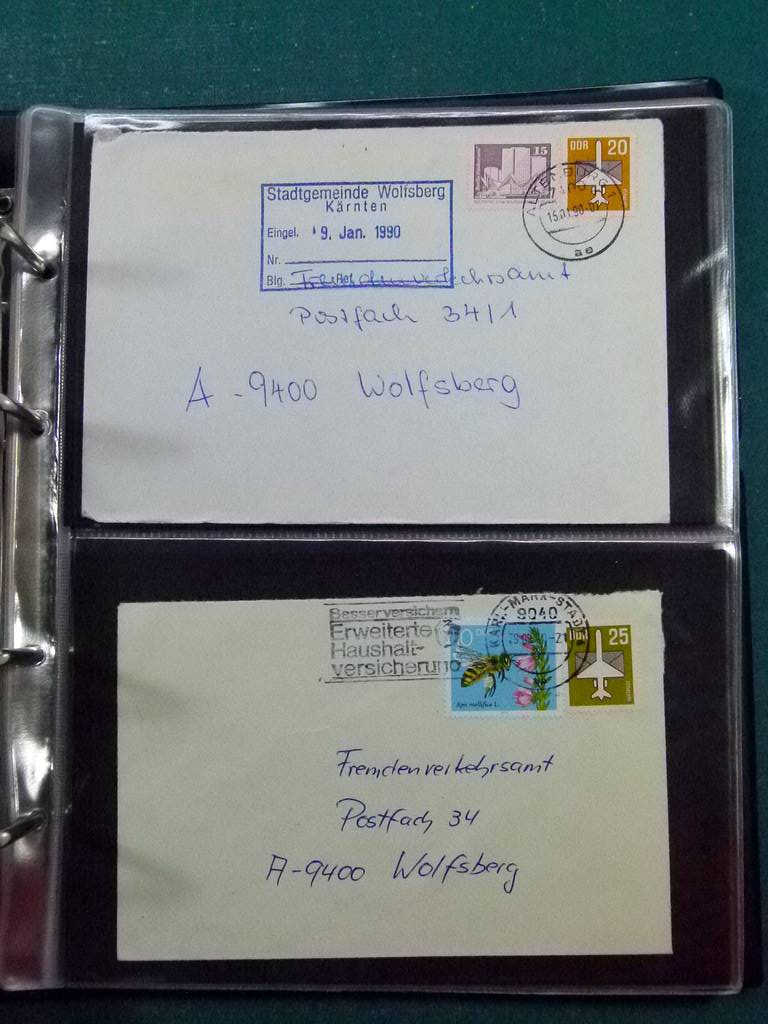 15
DDR 20
ALTENBURG 1
15.01.90-02
ae
Stadtgemeinde Wolfsberg
Kärnten
Eingel. 19. Jan. 1990
Nr.
Blg.
Fremdenverkehrsamt
Postfach 34/1
A-9400 Wolfsberg
KARL-MARX-STADT
9040
Besser versichern
Erweiterte
Haushalt-
versicherung
10
Apis mellifica L.
DDR 25
Fremdenverkehrsamt
Postfach 34
A-9400 Wolfsberg